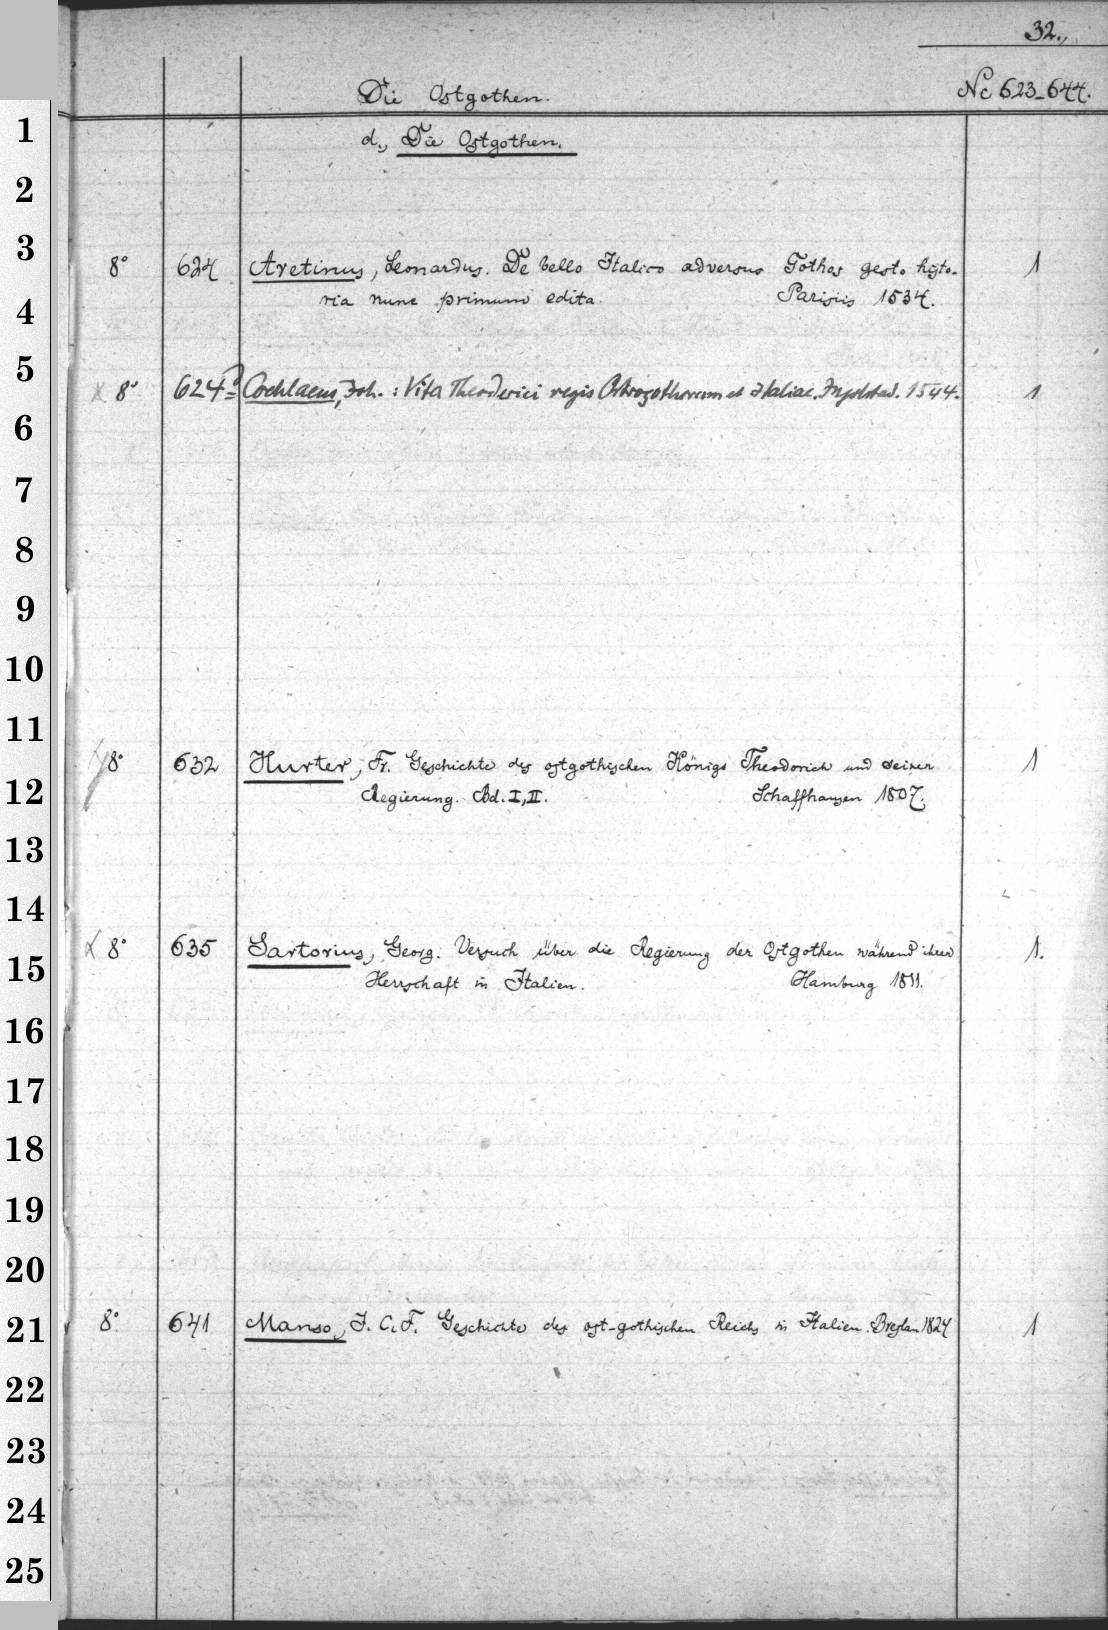 32.,
Die Ostgothen.
No 623-644.
d., Die Ostgothen.
8° 624 Aretinus, Leonardus. De bello Italico adversus Gothos gesto histo-
ria nunc primum edita. Parisiis 1534. 1
8° 624a Cochlaeus, Joh.: Vita Theoderici regis Ostrogothorum et Italiae. Ingolstad. 1544. 1
8° 632 Hurter, Fr. Geschichte des ostgothischen Königs Theodorich und seiner 1
Regierung. Bd. I, II. Schaffhausen 1807.
8° 635 Sartorius, Georg. Versuch über die Regierung der Ostgothen während ihrer 1.
Herrschaft in Italien. Hamburg 1811.
8° 641 Manso, J. C. F. Geschichte des ost-gothischen Reichs in Italien. Breslau 1824 1
1
2
3
4
5
6
7
8
9
10
11
12
13
14
15
16
17
18
19
20
21
22
23
24
25